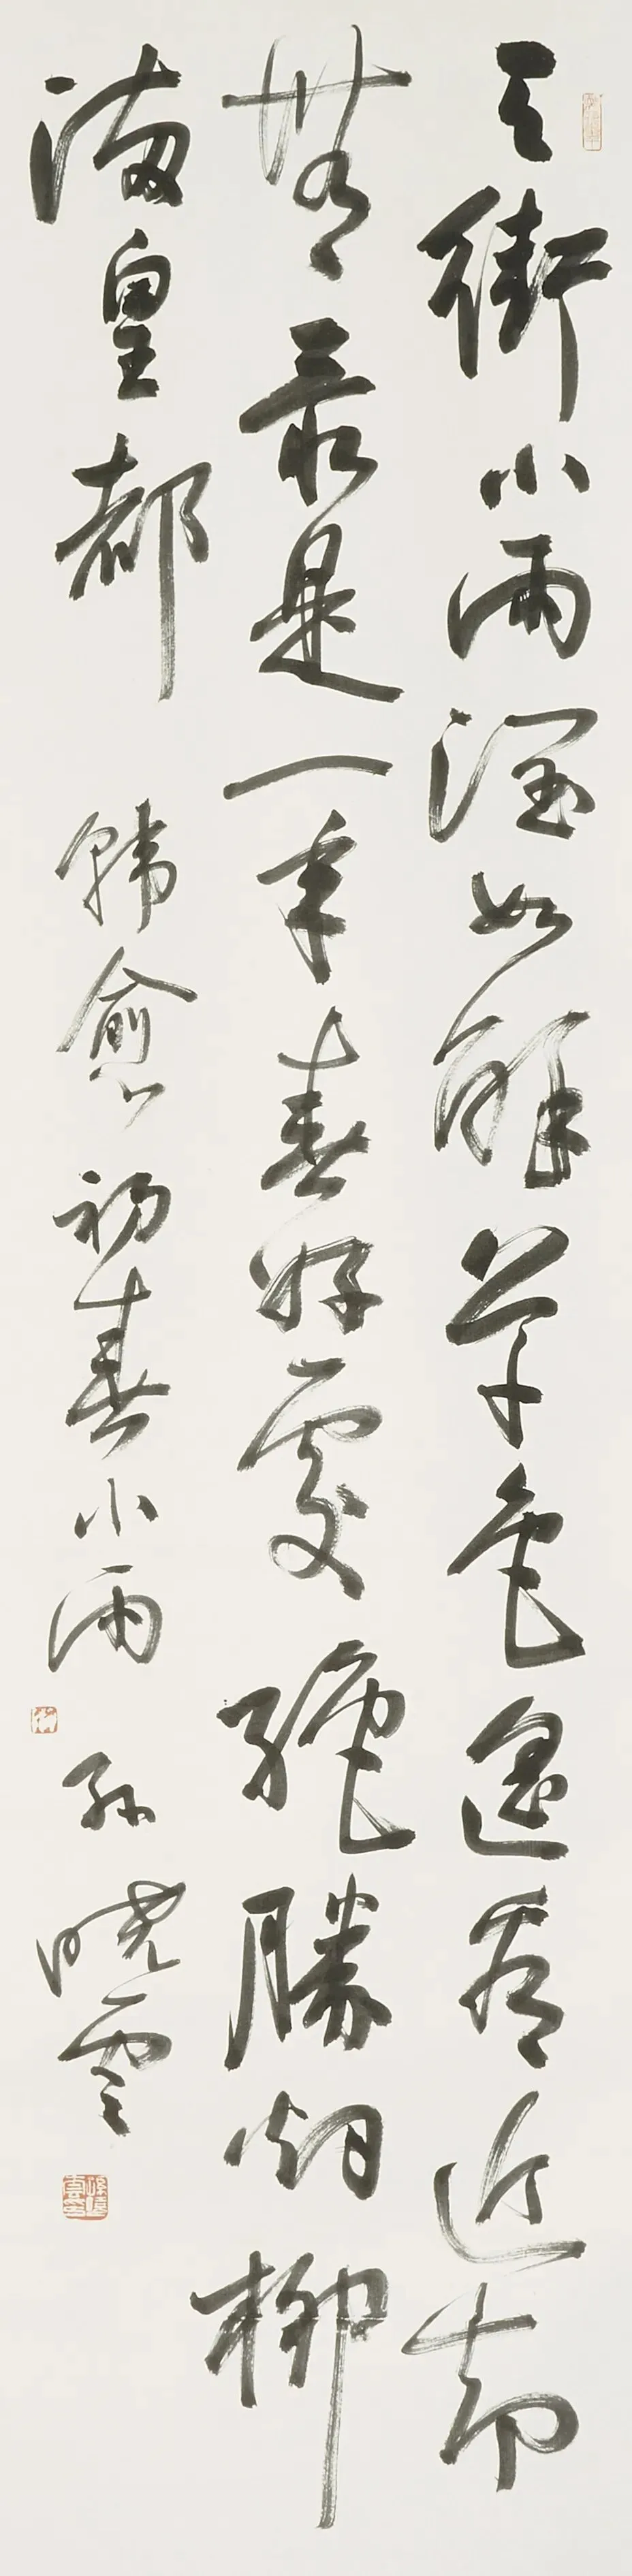 天街小雨潤如酥草色遥看近却
無最是一年春好處絕勝烟柳
滿皇都 韓愈初春小雨 孫曉雲